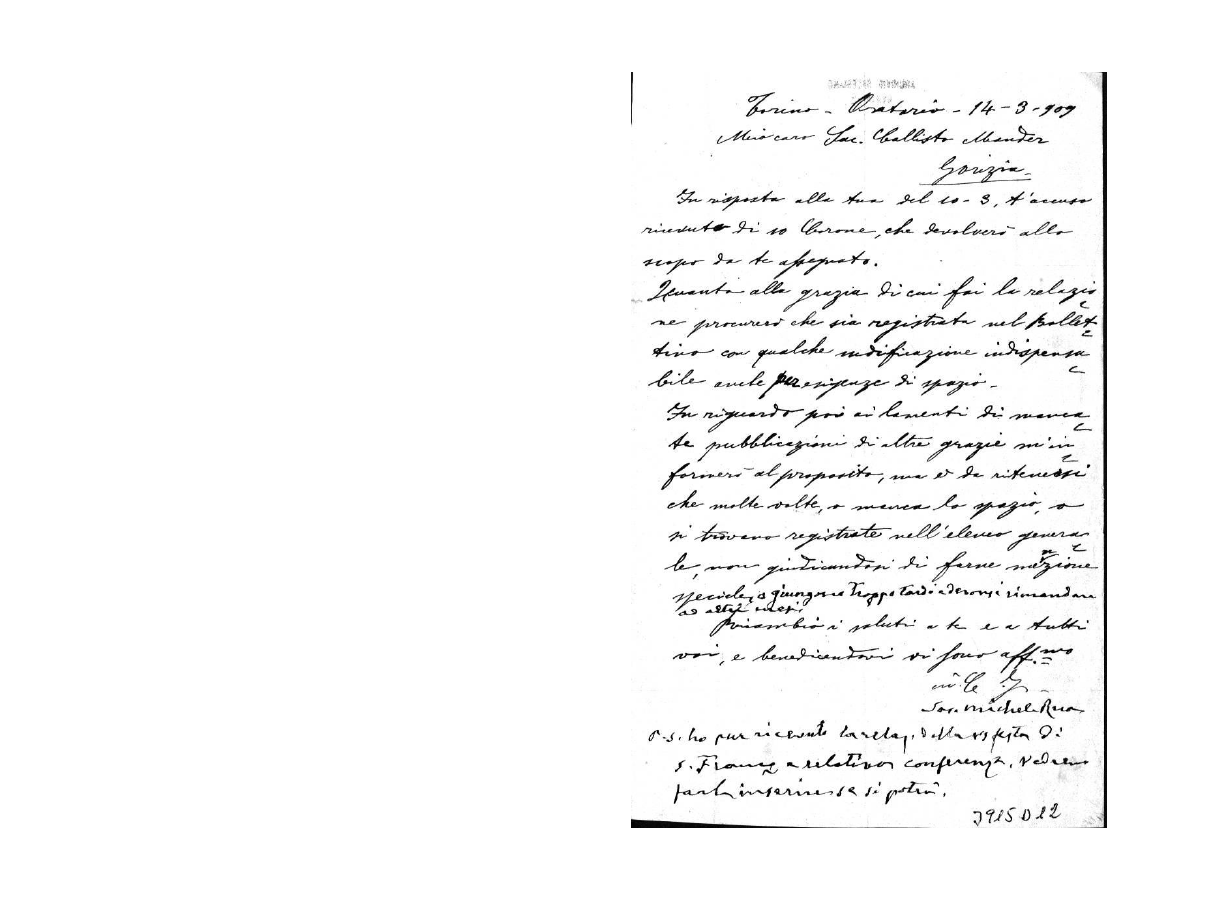 Torino - Oratorio - 14-3-909
Mio caro Sac. Callisto Mander
Gorizia.
In risposta alla tua del 10-3, t'accuso
ricevuta di 10 Corone, che devolverò allo
scopo da te assegnato.
Quanto alla grazia di cui fai la relazio
ne procurerò che sia registrata nel Bollet
tino con qualche modificazione indispensa
bile anche per esigenze di spazio.
In riguardo poi ai lamenti di manca
te pubblicazioni di altre grazie m'in
formerò al proposito, ma è da ritenersi
che molte volte, o manca lo spazio, o
si trovano registrate nell'elenco genera
le, non giudicandosi di farne menzione
speciale, o giungono troppo tardi e devonsi rimandare
ad altri mesi.
Ricambio i saluti a te e a tutti
voi, e benedicendovi vi sono aff.mo
in C. G.
Sac. Michele Rua
P.S. ho pur ricevuto la relaz. della festa di
S. Franc. e relativa conferenza. Vedremo
farla inserire se si potrà.
3915 D 12